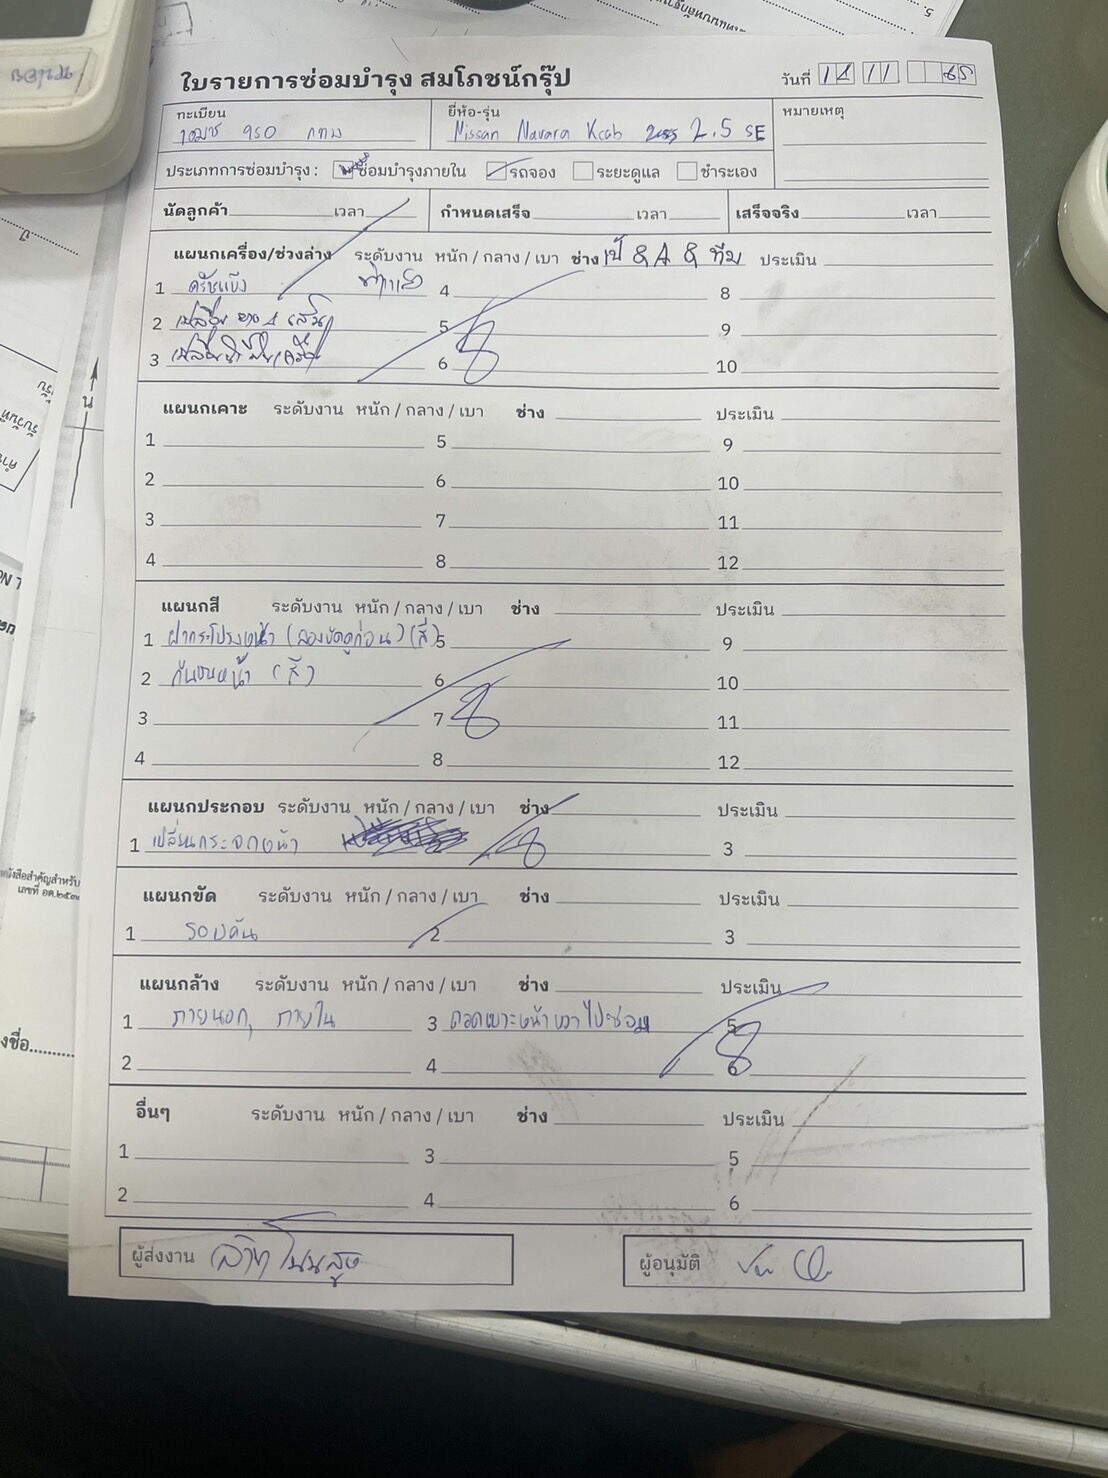 ใบรายการซ่อมบำรุง สมโภชน์กรุ๊ป
วันที่ 14 11 65
ทะเบียน
950 กทม
ยี่ห้อ-รุ่น
Nissan Navara Kcab 2.5 SE
หมายเหตุ
ประเภทการซ่อมบำรุง : ซ่อมบำรุงภายใน รถจอง ระยะดูแล ชำระเอง
นัดลูกค้า เวลา กำหนดเสร็จ เวลา เสร็จจริง เวลา
แผนกเครื่อง/ช่วงล่าง ระดับงาน หนัก / กลาง / เบา ช่าง เป้ & A & ทีม ประเมิน
1 ครัชแข็ง 4 8
2 เปลี่ยน ยาง 4 เส้น 5 9
3 เปลี่ยน 6 10
แผนกเคาะ ระดับงาน หนัก / กลาง / เบา ช่าง ประเมิน
1 5 9
2 6 10
3 7 11
4 8 12
แผนกสี ระดับงาน หนัก / กลาง / เบา ช่าง ประเมิน
1 ฝากระโปรงหน้า (ลองขัดดูก่อน) (สี) 5 9
2 กันชนหน้า (สี) 6 10
3 7 11
4 8 12
แผนกประกอบ ระดับงาน หนัก / กลาง / เบา ช่าง ประเมิน
1 เปลี่ยนกระจกหน้า 3
แผนกขัด ระดับงาน หนัก / กลาง / เบา ช่าง ประเมิน
1 รอบคัน 2 3
แผนกล้าง ระดับงาน หนัก / กลาง / เบา ช่าง ประเมิน
1 ภายนอก, ภายใน 3 ถอดเบาะหน้าขวาไปซ่อม 5
2 4 6
อื่นๆ ระดับงาน หนัก / กลาง / เบา ช่าง ประเมิน
1 3 5
2 4 6
ผู้ส่งงาน
ผู้อนุมัติ